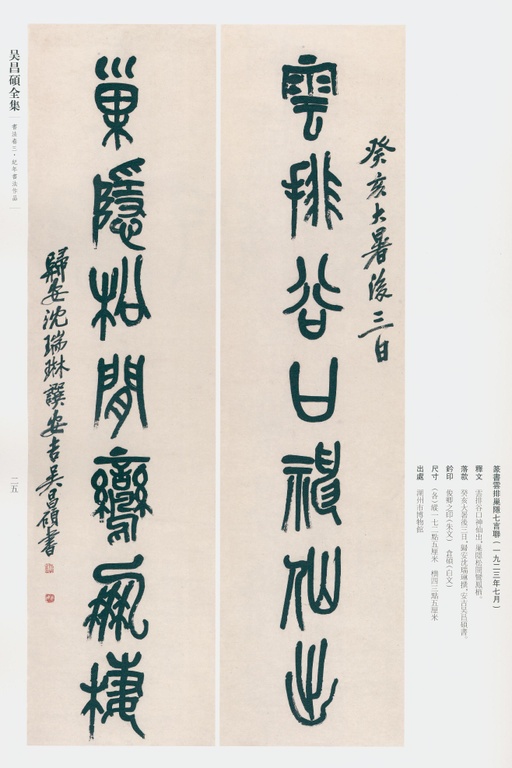 雲排谷口神仙出
癸亥大暑後三日
巢隱松間鸞鳳棲
歸安沈瑞琳譔安吉吴昌碩書
篆書雲排巢隱七言聯（一九二三年七月）
釋文　雲排谷口神仙出，巢隱松間鸞鳳棲。
落款　癸亥大暑後三日，歸安沈瑞琳撰，安吉吴昌碩書。
鈐印　俊卿之印（朱文）　倉碩（白文）
尺寸　（各）縱一七二點五厘米　橫四三點五厘米
出處　湖州市博物館
吴昌碩全集
書法卷三·紀年書法作品
二五